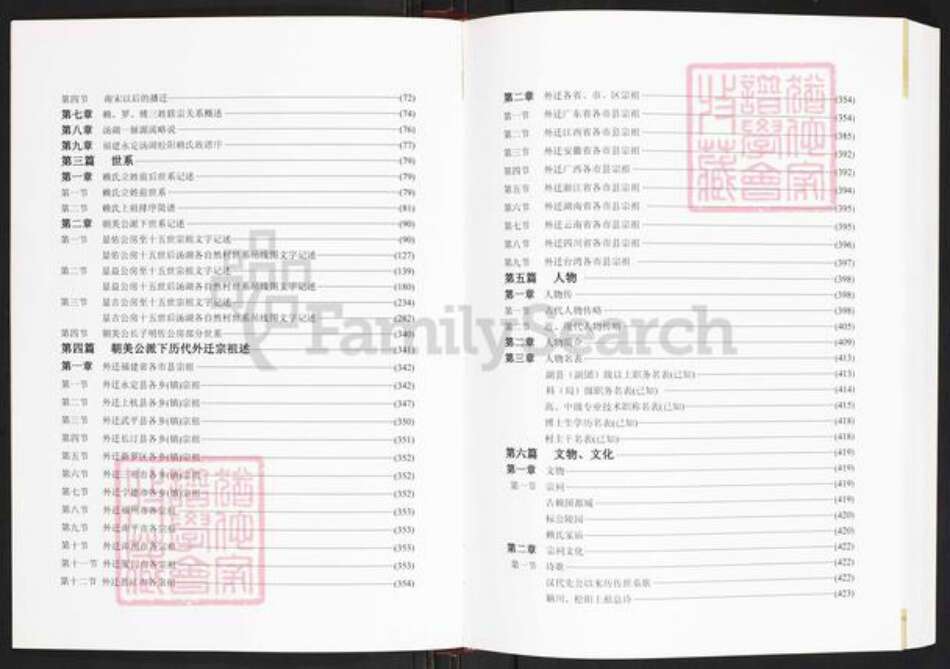 第四节 南宋以后的播迁 (72)
第七章 赖、罗、傅三姓联宗关系概述 (74)
第八章 汤湖一脉源流略说 (76)
第九章 福建永定汤湖松阳赖氏族谱序 (77)
第三篇 世系 (79)
第一章 赖氏立姓前后世系记述 (79)
第一节 赖氏立姓前世系 (79)
第二节 赖氏上祖排序简谱 (81)
第二章 朝美公派下世系记述 (90)
第一节 显佑公房至十五世宗祖文字记述 (90)
显佑公房十五世后汤湖各自然村世系吊线图文字记述 (127)
第二节 显益公房至十五世宗祖文字记述 (139)
显益公房十五世后汤湖各自然村世系吊线图文字记述 (180)
第三节 显吉公房至十五世宗祖文字记述 (234)
显吉公房十五世后汤湖各自然村世系吊线图文字记述 (282)
第四节 朝美公长子明佐公房部分世系 (340)
第四篇 朝美公派下历代外迁宗祖述 (341)
第一章 外迁福建省各市县宗祖 (342)
第一节 外迁永定县各乡(镇)宗祖 (342)
第二节 外迁上杭县各乡(镇)宗祖 (347)
第三节 外迁武平县各乡(镇)宗祖 (350)
第四节 外迁长汀县各乡(镇)宗祖 (351)
第五节 外迁新罗区各乡(镇)宗祖 (352)
第六节 外迁三明市各乡(镇)宗祖 (352)
第七节 外迁宁德市各乡(镇)宗祖 (352)
第八节 外迁福州市各宗祖 (353)
第九节 外迁南平市各宗祖 (353)
第十节 外迁漳州市各宗祖 (353)
第十一节 外迁厦门市各宗祖 (353)
第十二节 外迁 市各宗祖 (354)
第二章 外迁各省、市、区宗祖 (354)
第一节 外迁广东省各市县宗祖 (354)
第二节 外迁江西省各市县宗祖 (385)
第三节 外迁安徽省各市县宗祖 (392)
第四节 外迁广西各市县宗祖 (392)
第五节 外迁浙江省各市县宗祖 (394)
第六节 外迁湖南省各市县宗祖 (395)
第七节 外迁云南省各市县宗祖 (395)
第八节 外迁四川省各市县宗祖 (396)
第九节 外迁台湾各市县宗祖 (397)
第五篇 人物 (398)
第一章 人物传 (398)
第一节 古代人物传略 (398)
第二节 近、现代人物传略 (405)
第二章 人物简介 (409)
第三章 人物名表 (413)
副县（副团）级以上职务名表(已知) (413)
科（局）级职务名表(已知) (414)
高、中级专业技术职称名表(已知) (415)
博士生学历名表(已知) (418)
村主干名表(已知) (418)
第六篇 文物、文化 (419)
第一章 文物 (419)
第一节 宗祠 (419)
古赖国都城 (419)
标公陵园 (420)
赖氏家庙 (420)
第二章 宗祠文化 (422)
第一节 诗歌 (422)
汉代先公以来历传世系歌 (422)
颍川、松阳上祖总诗 (423)
FamilySearch